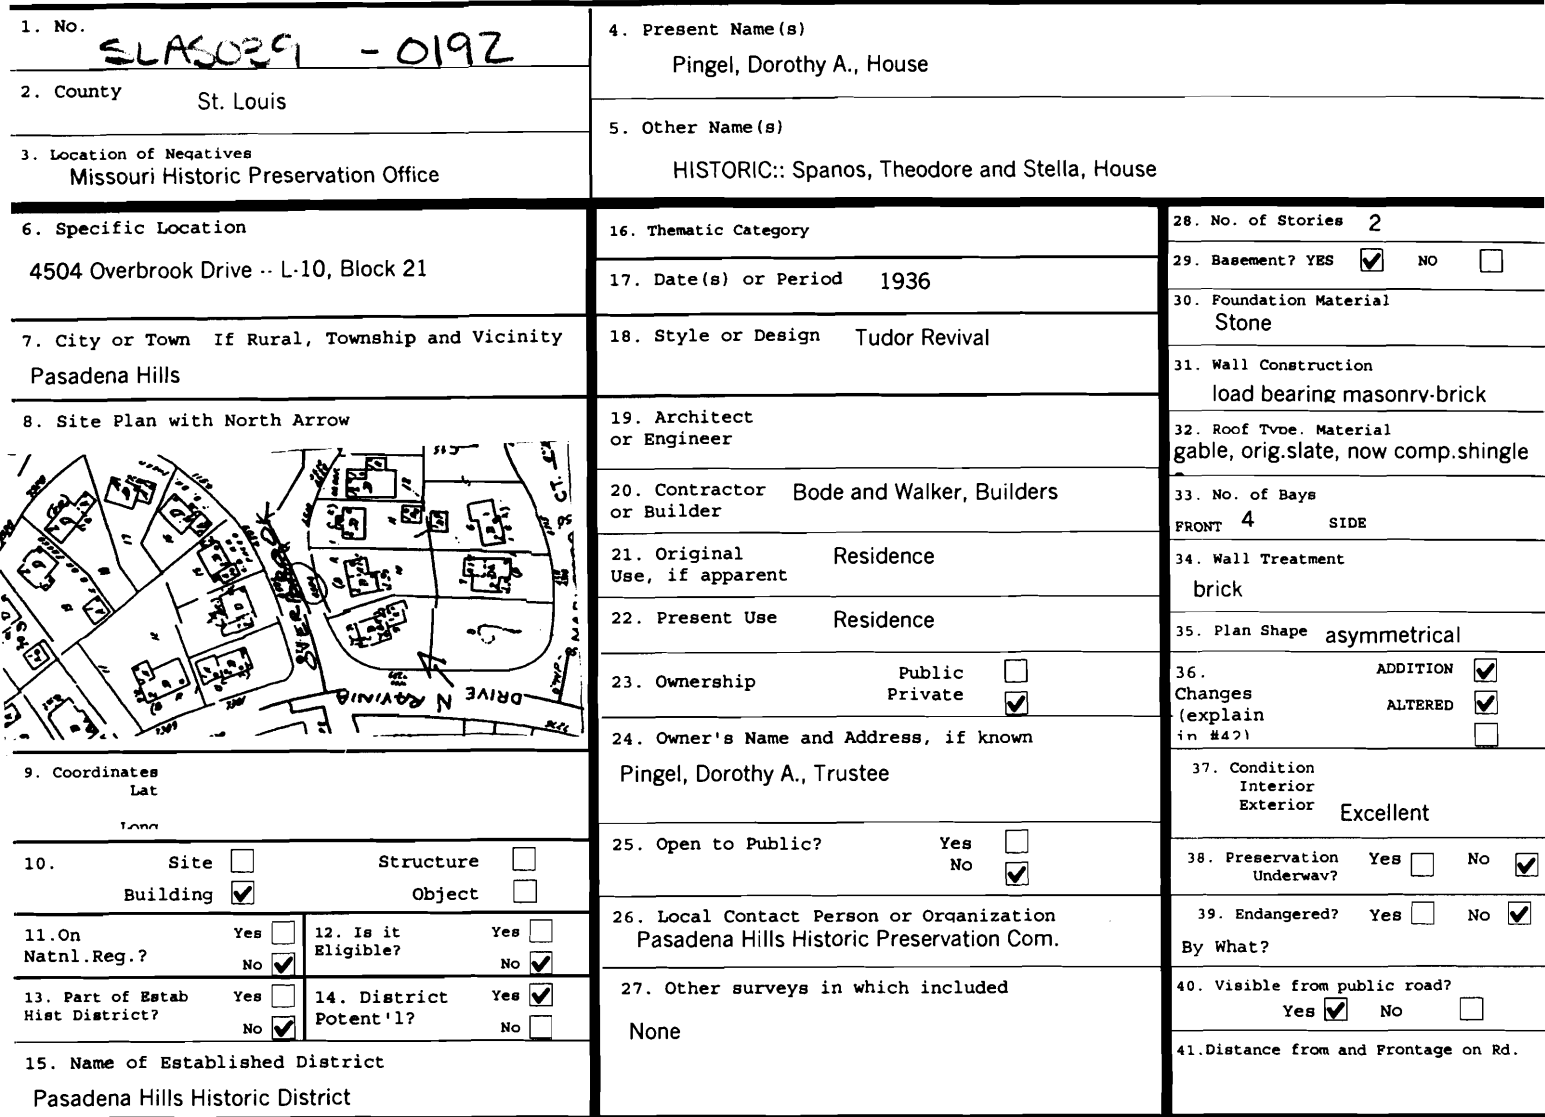 1. No.
SLAS039 -0192
2. County
St. Louis
3. Location of Negatives
Missouri Historic Preservation Office
4. Present Name(s)
Pingel, Dorothy A., House
5. Other Name(s)
HISTORIC:: Spanos, Theodore and Stella, House
6. Specific Location
4504 Overbrook Drive -- L-10, Block 21
7. City or Town If Rural, Township and Vicinity
Pasadena Hills
8. Site Plan with North Arrow
OVERBROOK
DRIVE
N RAVINIA
CT.
9. Coordinates
Lat
Long
10. Site Structure
Building Object
11.On Natnl.Reg.? Yes No
12. Is it Eligible? Yes No
13. Part of Estab Hist District? Yes No
14. District Potent'l? Yes No
15. Name of Established District
Pasadena Hills Historic District
16. Thematic Category
17. Date(s) or Period 1936
18. Style or Design Tudor Revival
19. Architect
or Engineer
20. Contractor Bode and Walker, Builders
or Builder
21. Original Residence
Use, if apparent
22. Present Use Residence
23. Ownership Public
Private
24. Owner's Name and Address, if known
Pingel, Dorothy A., Trustee
25. Open to Public? Yes
No
26. Local Contact Person or Organization
Pasadena Hills Historic Preservation Com.
27. Other surveys in which included
None
28. No. of Stories 2
29. Basement? YES NO
30. Foundation Material
Stone
31. Wall Construction
load bearing masonry-brick
32. Roof Type. Material
gable, orig.slate, now comp.shingle
33. No. of Bays
FRONT 4 SIDE
34. Wall Treatment
brick
35. Plan Shape asymmetrical
36. ADDITION
Changes
ALTERED
(explain
in #42)
37. Condition
Interior
Exterior Excellent
38. Preservation Yes No
Underway?
39. Endangered? Yes No
By What?
40. Visible from public road?
Yes No
41.Distance from and Frontage on Rd.